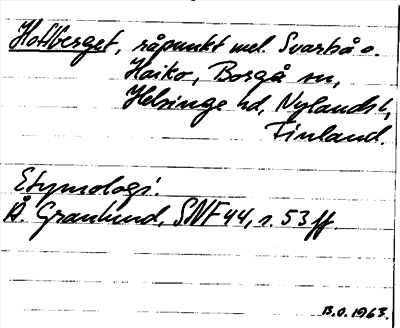 Hofberget, råpunkt mel. Svarbå o.
Haiko, Borgå sn,
Helsinge hd, Nylands l,
Finland.
Etymologi.
Å. Granlund, SNF 44, s. 53 ff.
B.O. 1963.